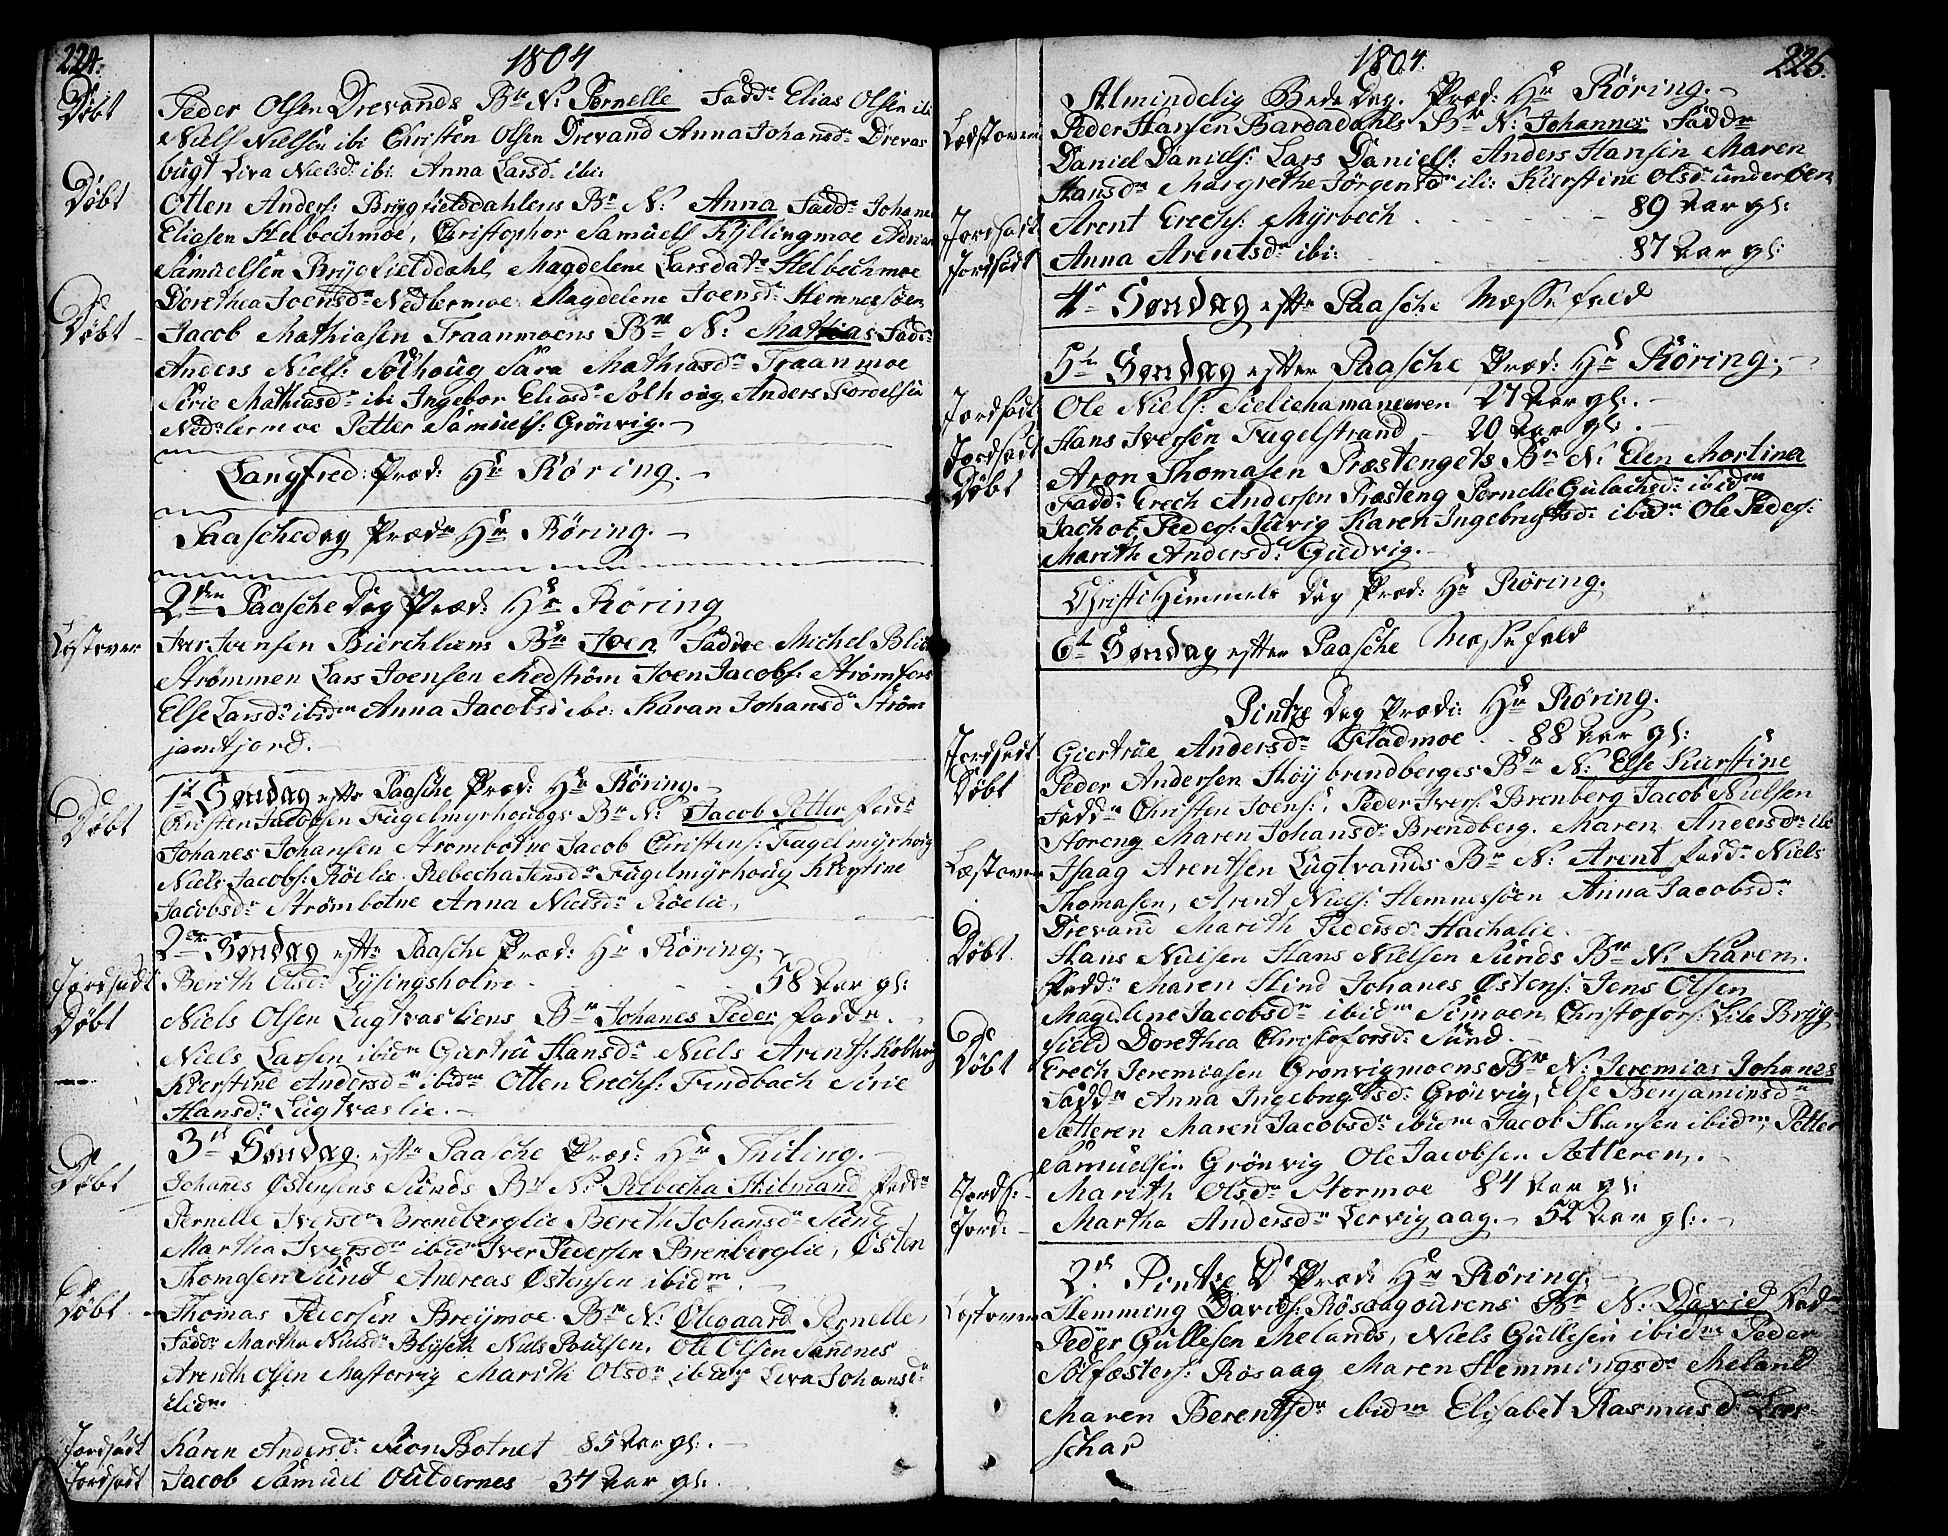 224.
1804
Døbt
Peder Olsen Drevands Bn N: Pernelle Fadd: Elias Olsen ibi
Niels Nielsen ibi Christen Olsen Drevand Anna Johansd: Drevas
bugt Liva Nielsd: ibi: Anna Larsd: ibi:
Døbt
Otten Anders: Brygfieldahlens Bn N: Anna Fadd: Johan
Eliasen Stelbechmoe, Christopher Samuels Kyllingmoe Adrian
Samuelsen Brygfielddahl, Magdelene Larsdatr Stelbechmoe
Dorethea Joensd: Nedlermoe Magdelene Joensd: Hemnessøen
Døbt
Jacob Mathiasen Traanmoens Bn N: Mathias Fadd:
Anders Niels: Solhoug Sara Mathiasd: Traanmoe
Sirie Mathiasd: ibi Ingebor Eliasd: Solhoug Anders Tordelsen
Nedlermoe Petter Samuels: Grönvig.
Langfred: Præd: Hr Röring.
Paaschedag Præd: Hr Röring.
2den Paasche Dag Præd: Hr Röring
Læstover
Iver Joensen Bierchliens Bn Joen Fadd: Michel Blic
Strømmen Lars Joensen Medström Joen Jacobs: Strømfors
Else Larsd: ibidm Anna Jacobsd ibi: Karan Johansd Ström
jamtjord.
1te Søndag efter Paasche Præd: Hr Röring.
Døbt
Christen Jacobsen Fugelmyrhougs Bn N: Jacob Petter fadd:
Johanes Johansen Strombotne Jacob Christens: Fugelmyrhoug
Niels Jacobs: Röelie Rebecha Jensd: Fugelmyrhoug Kierstine
Jacobsd: Strømbotne Anna Nielsd: Röelie,
2den Søndag efter Paasche Præd: Hr Röring.
Jordfædt
Berith Olsd: Lysingsholm 58 Aar gl:
Døbt
Niels Olsen Lugtvasliens Bn Johanes Peder fadd:
Niels Larsen ibidm Giertru Hansd: Niels Arents: Kobhoug
Kierstine Andersd: ibidm Otten Erechs: Findbach Sirie
Hansd: Lugtvaslie.
3de Søndag efter Paasche Præd: Hr Thiling.
Døbt
Johanes Østensens Sunds Bn N: Rebecha Hilmand fadd:
Pernelle Iversd: Brendberglie Bereth Johansd: Sund
Martha Iversd: ibid Iver Pedersen Brenberglie, Østen
Thomasen Sund Andreas Østensen ibidm
Døbt
Thomas Pedersen Breymoe Bn N: Olegaard Pernelle,
Fadd: Martha Nielsd: Blyseth Niels Poulsen, Ole Olsen Sandnes
Arenth Olsen Mastervig Marith Olsd: ibidm Liva Johansd:
ibidm
Jordfædt
Karen Andersd: Leon Botnet 85 Aar gl:
Jordfædt
Jacob Samuel Ouldernes 34 Aar gl:
1804.
225.
Almindelig Bede Dag. Præd: Hr Röring.
Læstoven
Peder Hansen Bardadahls Bn N: Johannes Fadd:
Daniel Daniels: Lars Daniels: Anders Hansen Maren
Hansd: Margrethe Jörgensd: ibi: Kierstine Olsd: underben
Jordfædt
Arent Erechs: Myrbech 89 Aar gl:
Jordfædt
Anna Arentsd: ibi: 87 Aar gl:
4de Søndag efter Paasche Messefald
5te Søndag efter Paasche Præd: Hr Röring.
Jordfædt
Ole Niels: 27 Aar gl:
Jordfædt
Hans Iversen Fugelstrand 20 Aar gl:
Døbt
Aron Thomasen Præstengets Bn N: Elen Martina
Fadd: Erech Andersen Præsteng Pernelle Gulachsd: ibidm
Jachob Peders: Julvig Karen Ingebrigtsd: ibidm Ole Peders:
Marith Andersd: Gudvig.
Christi Himmels Dag Præd: Hr Röring.
6te Søndag efter Paasche Messefald
Pintze Dag Præd: Hr Röring.
Jordfædt
Giertrue Andersd: Fladmoe 88 Aar gl:
Døbt
Peder Andersen Høybrendberges Bn N: Else Kierstine
Fadd: Christen Joens: Peder Ivers: Brenberg Jacob Nielsen
Storeng Maren Johansd: Brendberg. Maren Andersd: ibi
Læstoven
Isaag Arentsen Lugtvands Bn N: Arent fadd: Niels
Thomasen, Arent Niels: Hemnessöen Anna Jacobsd:
Drevand Marith Pedersd: Hachalie.
Døbt
Hans Nielsen Hans Nielsen Sunds Bn N: Karen.
Fadd: Maren Hind Johanes Østens: Jens Olsen
Magdelene Jacobsd: ibidm Simoen Christofors: Lile Bryg
field Dorethea Christofersd: Sund.
Døbt
Erech Jeremiasen Grønvigmoens Bn N: Jeremias Johanes
Fadd: Anna Ingebrigtsd: Grönvig, Else Benjaminsd:
Sætteren Maren Jacobsd: ibidm Jacob Hansen ibidm, Petter
Samuelsen Grönvig Ole Jacobsen Sætteren.
Jordf:
Marith Olsd: Stormoe 84 Aar gl:
Jord:
Martha Andersd: Lervigaag. 52 Aar gl:
2den Pintze D: Præd: Hr Röring.
Læstoven
Hemming Davids: Rösaagourens Bn N: David Fadd:
Peder Gullesen Melands, Niels Gullesen ibidm Peder
Sølfæsters: Røsaag Maren Hemmingsd: Meland
Maren Berentsd: ibidm Elisabet Rasmusd: Lær
schar